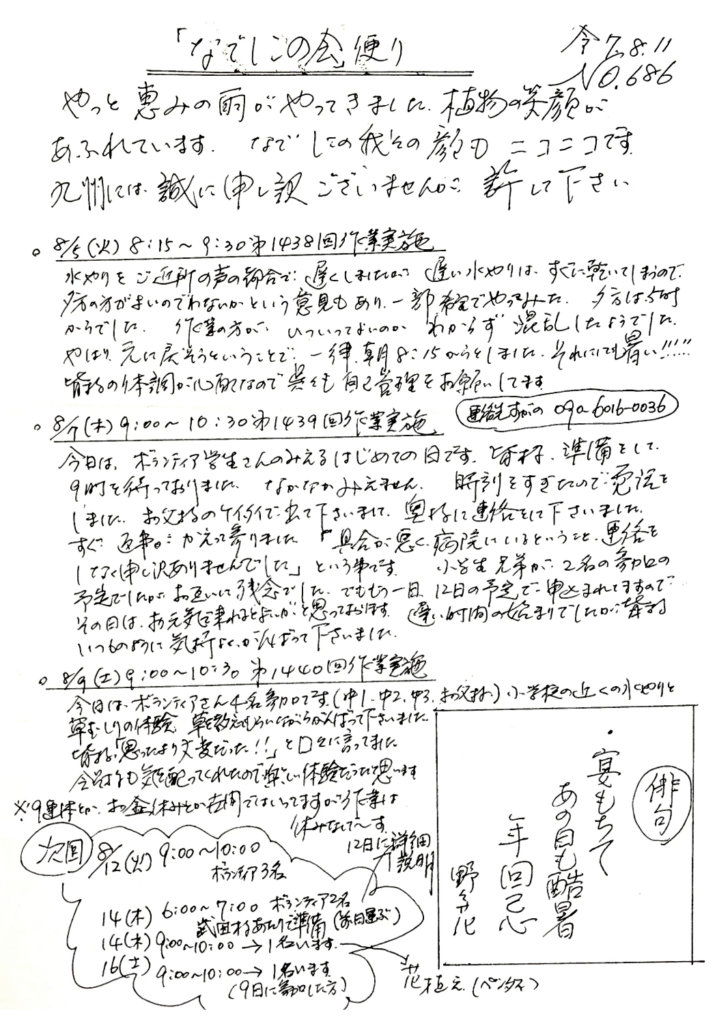 「なでしこの会」便り
令7.8.11
NO.686
やっと恵みの雨がやってきました。植物の笑顔が
あふれています。なでしこの我々の顔もニコニコです。
九州には、誠に申し訳ございませんが、許して下さい
○8/5(火)8:15~9:30第1438回作業実施
水やりをご近所の声の都合で、遅くしましたが、遅い水やりは、すぐに乾いてしまうので、
夕方の方がよいのでわないかという意見もあり、一部希望でやってみた。夕方は5時
からでした。作業の方が、いついってよいのかわからず混乱したようでした。
やはり、元に戻そうということで、一律、朝8:15からとしました。それにしても暑い!!!!!
皆様の体調が心配なので呉々も自己管理をお願いしてます
○8/7(木)9:00~10:30第1439回作業実施
連絡先すがの 090-6016-0036
今日は、ボランティア学生さんのみえるはじめての日です。皆様、準備をして、
9時を待っておりました。なかなかみえません。時刻をすぎたので電話を
しました。お父様のケイタイで出て下さいまして、奥様に連絡をして下さいました。
すぐ返事がかえって参りました「具合が悪く、病院にいるということ、連絡を
しなく申し訳ありませんでした」という事です。小学生兄弟が、2名の参加の
予定でしたが、お互いに残念でした。でももう一日、12日の予定で申込まれてますので
その日は、お元気で来れるとよいがと思っております。遅い時間の始まりでしたが、皆様
いつものように気持よくがんばって下さいました。
○8/9(土)9:00~10:30 第1440回作業実施
今日は、ボランティアさん4名参加です(中1、中2、中3、お父様)小学校の近くの水やりと
草むしりの体験、草を教えてもらいながらがんばって下さいました。
皆様、「思ったより大変だった!!」と口々に言ってました
気を配ってくれたので楽しい体験だったと思います
※9連休とか、お盆休みとか世間ではいってますが、作業は
休みなしで~す
次回
8/12(火) 9:00~10:00
ボランティア3名
12日に詳細
説明
14(木) 6:00~7:00 ボランティア2名
武田様あたりで準備(前日運ぶ)
14(木) 9:00~10:00→1名います
花植え(ペンタス)
16(土) 9:00~10:00→1名います
(9日に参加した方)
俳句
・宴もちて
あの日も酷暑
年回忌
野々花